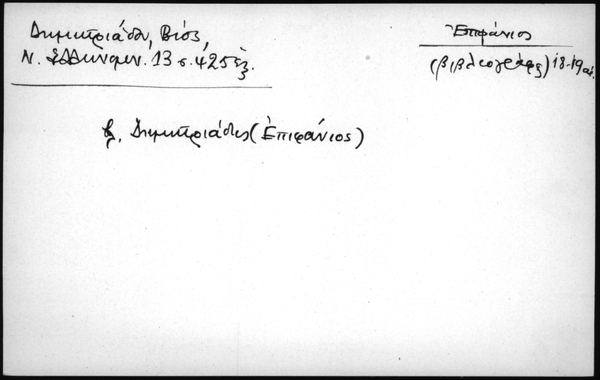 Δημητριάδου, Βίος,
Ν. Ἑλληνομν. 13 σ. 425 ἑξ.
Ἐπιφάνιος
(βιβλιογράφος) 18-19 αἰ.
β. Δημητριάδης (Ἐπιφάνιος)